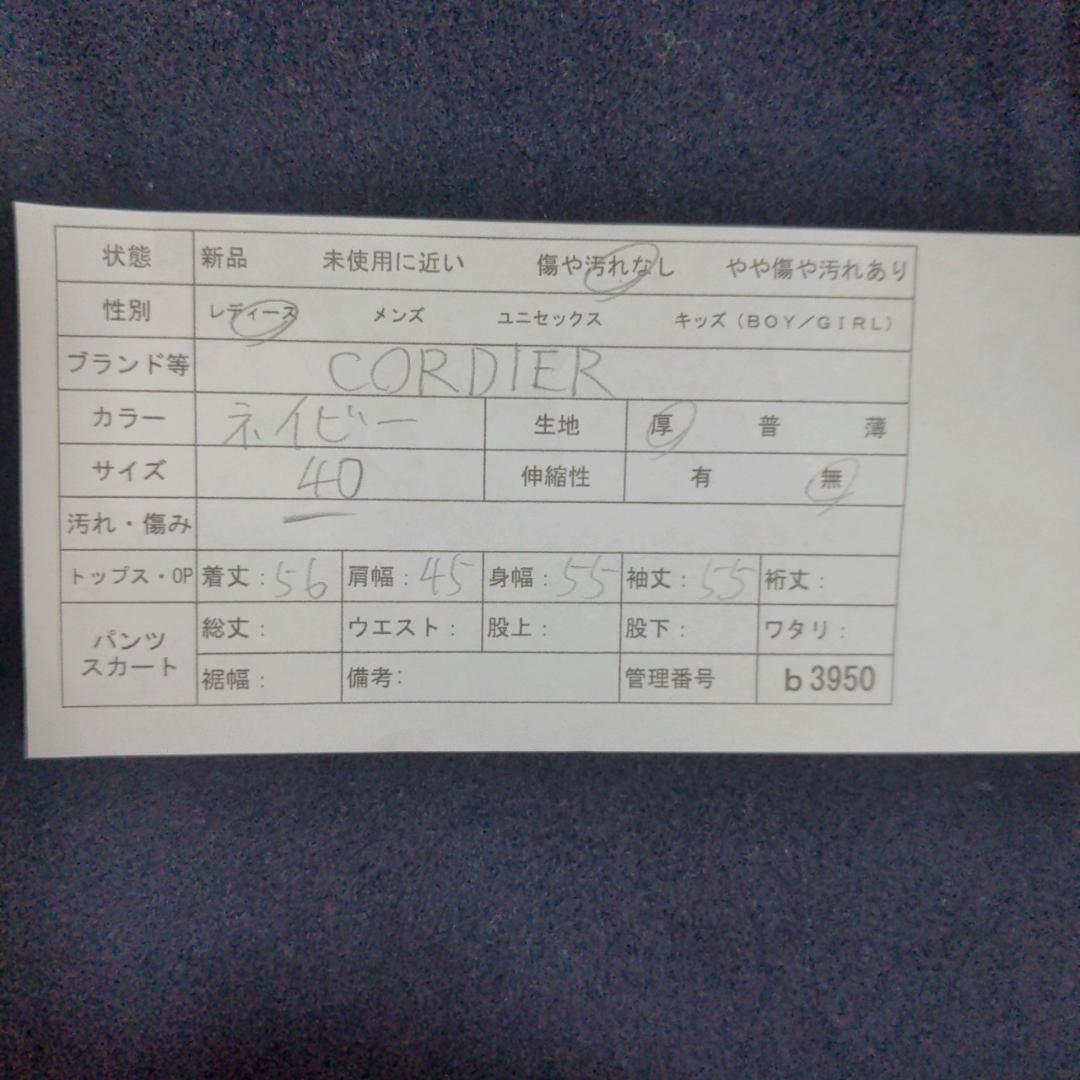 状態 新品 未使用に近い 傷や汚れなし やや傷や汚れあり
性別 レディース メンズ ユニセックス キッズ（BOY／GIRL）
ブランド等 CORDIER
カラー ネイビー 生地 厚 普 薄
サイズ 40 伸縮性 有 無
汚れ・傷み
トップス・OP 着丈：56 肩幅：45 身幅：55 袖丈：55 裄丈：
パンツ スカート 総丈： ウエスト： 股上： 股下： ワタリ：
裾幅： 備考： 管理番号 b3950